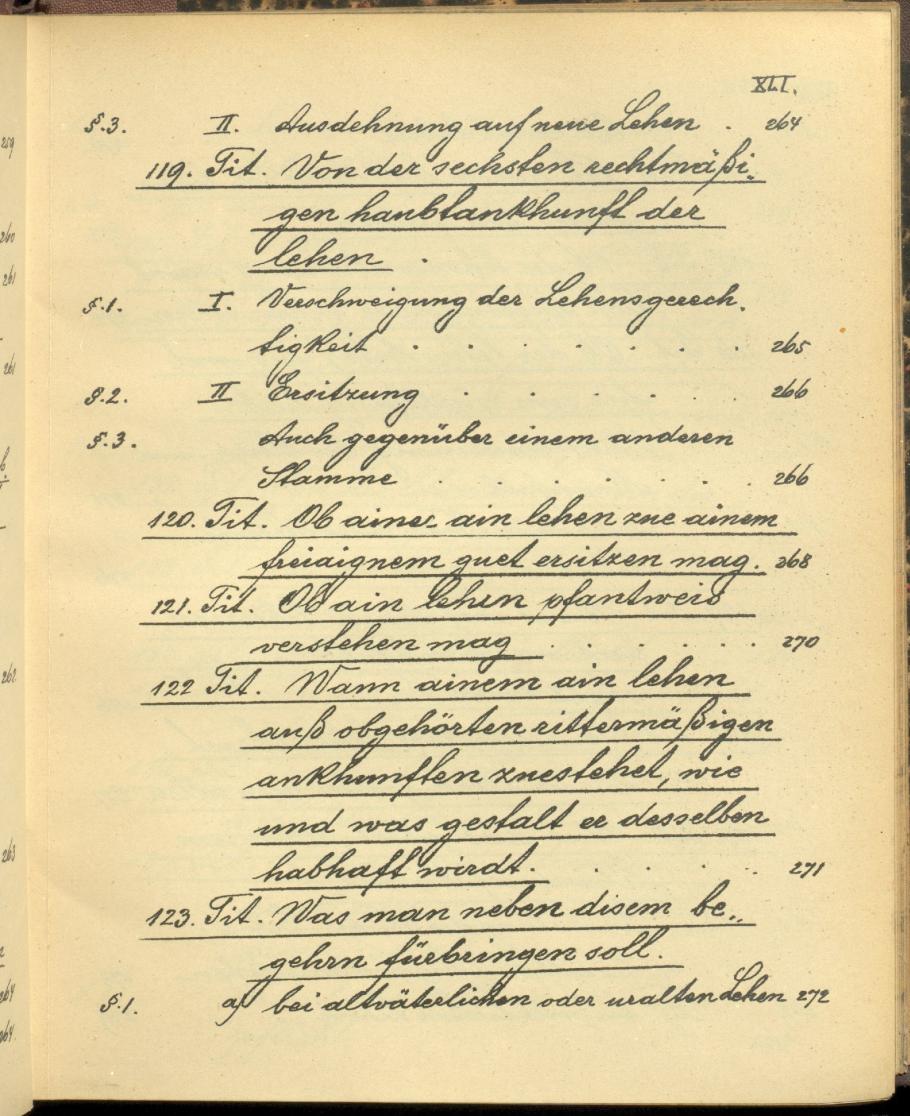 XLI.
§.3. II. Ausdehnung auf neue Lehen . 264
119. Tit. Von der sechsten rechtmäßi„
gen haubtankhunft der
lehen .
§.1. I. Verschweigung der Lehensgerech„
tigkeit . . . . . . . 265
§.2. II Ersitzung . . . . . . 266
§.3. Auch gegenüber einem anderen
Stamme . . . . . . . 266
120. Tit. Ob ainer ain lehen zue ainem
freiaignem guet ersitzen mag. 268
121. Tit. Ob ain lehen pfantweis
verstehen mag . . . . . . 270
122 Tit. Wann ainem ain lehen
auß obgehörten rittermäßigen
ankhunften zuestehet, wie
und was gestalt er desselben
habhaft wirdt. . . . . . 271
123. Tit. Was man neben disem be„
gehrn fürbringen soll.
§.1. a) bei altväterlichen oder uralten Lehen 272
259
260
261
261
262
263
264
264.